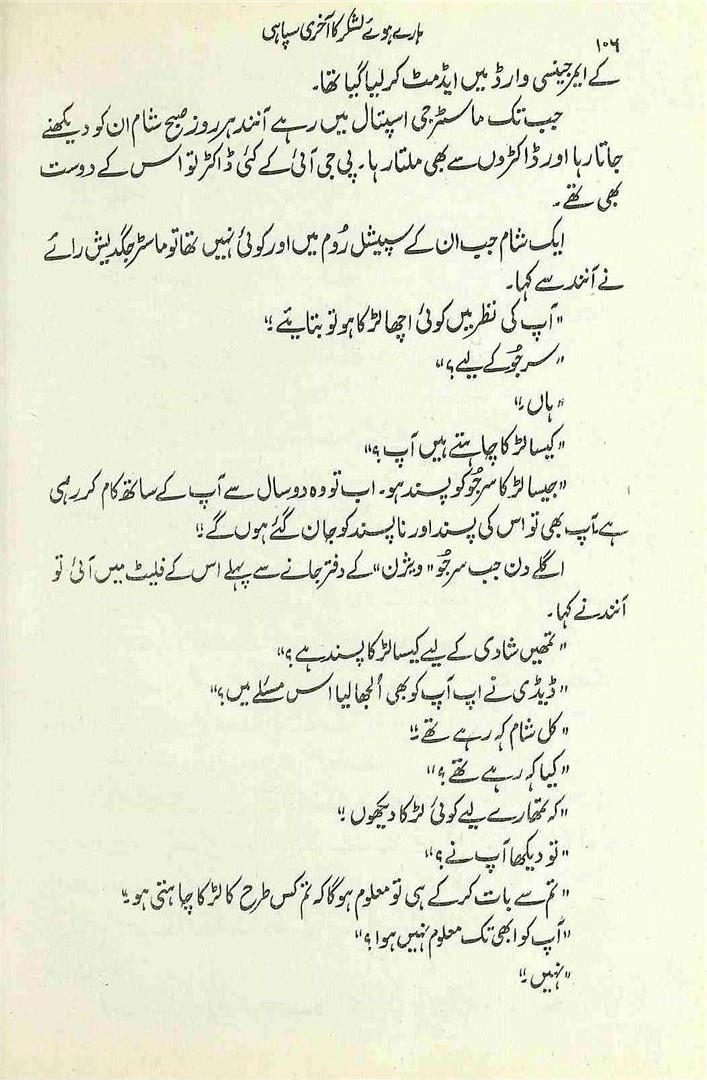 ہارے ہوئے لشکر کا آخری سپاہی
۱۰۶
کے ایمرجینسی وارڈ میں ایڈمٹ کر لیا گیا تھا۔
جب تک ماسٹر جی اسپتال میں رہے آنند ہر روز صبح شام ان کو دیکھنے
جاتا رہا اور ڈاکٹروں سے بھی ملتا رہا۔ پی جی آئی کے کئی ڈاکٹر تو اس کے دوست
بھی تھے۔
ایک شام جب ان کے سپیشل رُوم میں اور کوئی نہیں تھا تو ماسٹر جگدیش رائے
نے آنند سے کہا۔
"آپ کی نظر میں کوئی اچھا لڑکا ہو تو بتایئے۔"
"سرجُو کے لیے؟"
"ہاں۔"
"کیسا لڑکا چاہتے ہیں آپ؟"
"جیسا لڑکا سرجُو کو پسند ہو۔ اب تو وہ دو سال سے آپ کے ساتھ کام کر رہی
ہے آپ بھی تو اس کی پسند اور ناپسند کو جان گئے ہوں گے۔"
اگلے دن جب سرجُو "ویژن" کے دفتر جانے سے پہلے اس کے فلیٹ میں آئی تو
آنند نے کہا۔
"تمھیں شادی کے لیے کیسا لڑکا پسند ہے؟"
"ڈیڈی نے اب آپ کو بھی اُلجھا لیا اس مسئلے میں؟"
"کل شام کہہ رہے تھے۔"
"کیا کہہ رہے تھے؟"
"کہ تمھارے لیے کوئی لڑکا دیکھوں۔"
"تو دیکھا آپ نے؟"
"تم سے بات کر کے ہی تو معلوم ہوگا کہ تم کس طرح کا لڑکا چاہتی ہو۔"
"آپ کو ابھی تک معلوم نہیں ہوا؟"
"نہیں۔"